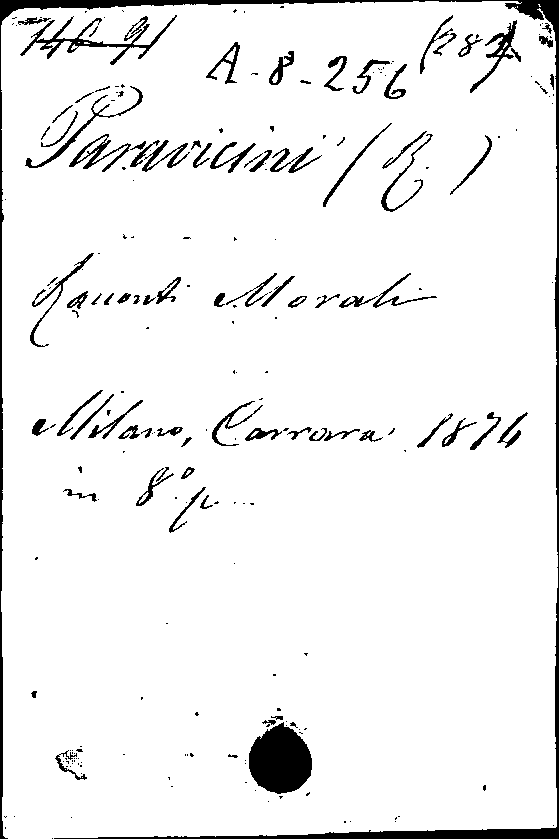 140-91
A-8-256 (282)
Paravicini (R.)
Racconti Morali
Milano, Carrara 1876
in 8º p.